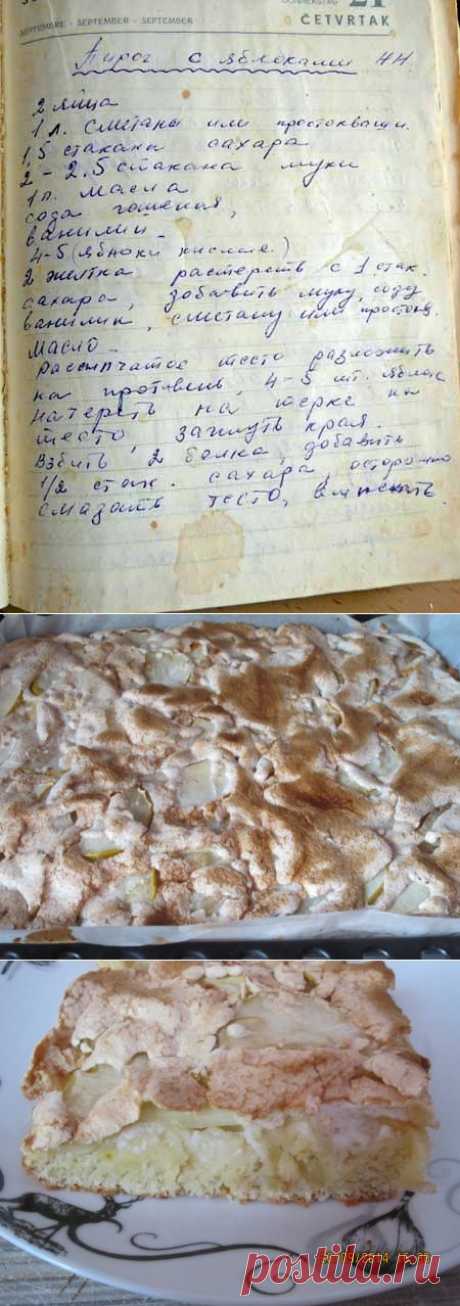 SEPTEMBRE - SEPTEMBER - SEPTEMBER
ČETVRTAK
Пирог с яблоками НН
2 яйца
1 л. сметаны или простокваши.
1,5 стакана сахара
2 - 2.5 стакана муки
1 п. масла
сода гашеная,
ванилин -
4-5 (яблоки кислые.)
2 желтка растереть с 1 стак.
сахара, добавить муку, соду
ванилин, сметану или простокв.
масло -
Рассыпчатое тесто разложить
на противень, 4-5 шт. яблок
натереть на терке на
тесто, загнуть края.
Взбить 2 белка, добавить
1/2 стак. сахара, осторожно
смазать тесто, выпекать.
postila.ru